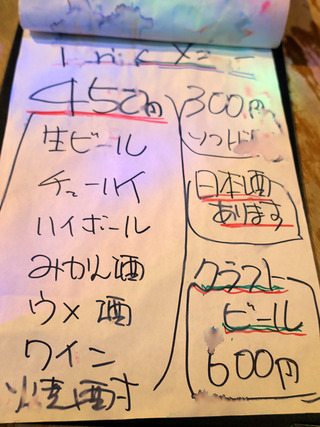 Drink メニュー
450円
生ビール
チューハイ
ハイボール
みかん酒
ウメ酒
ワイン
焼酎
300円
ソフトド
日本酒
あります
クラフト
ビール
600円